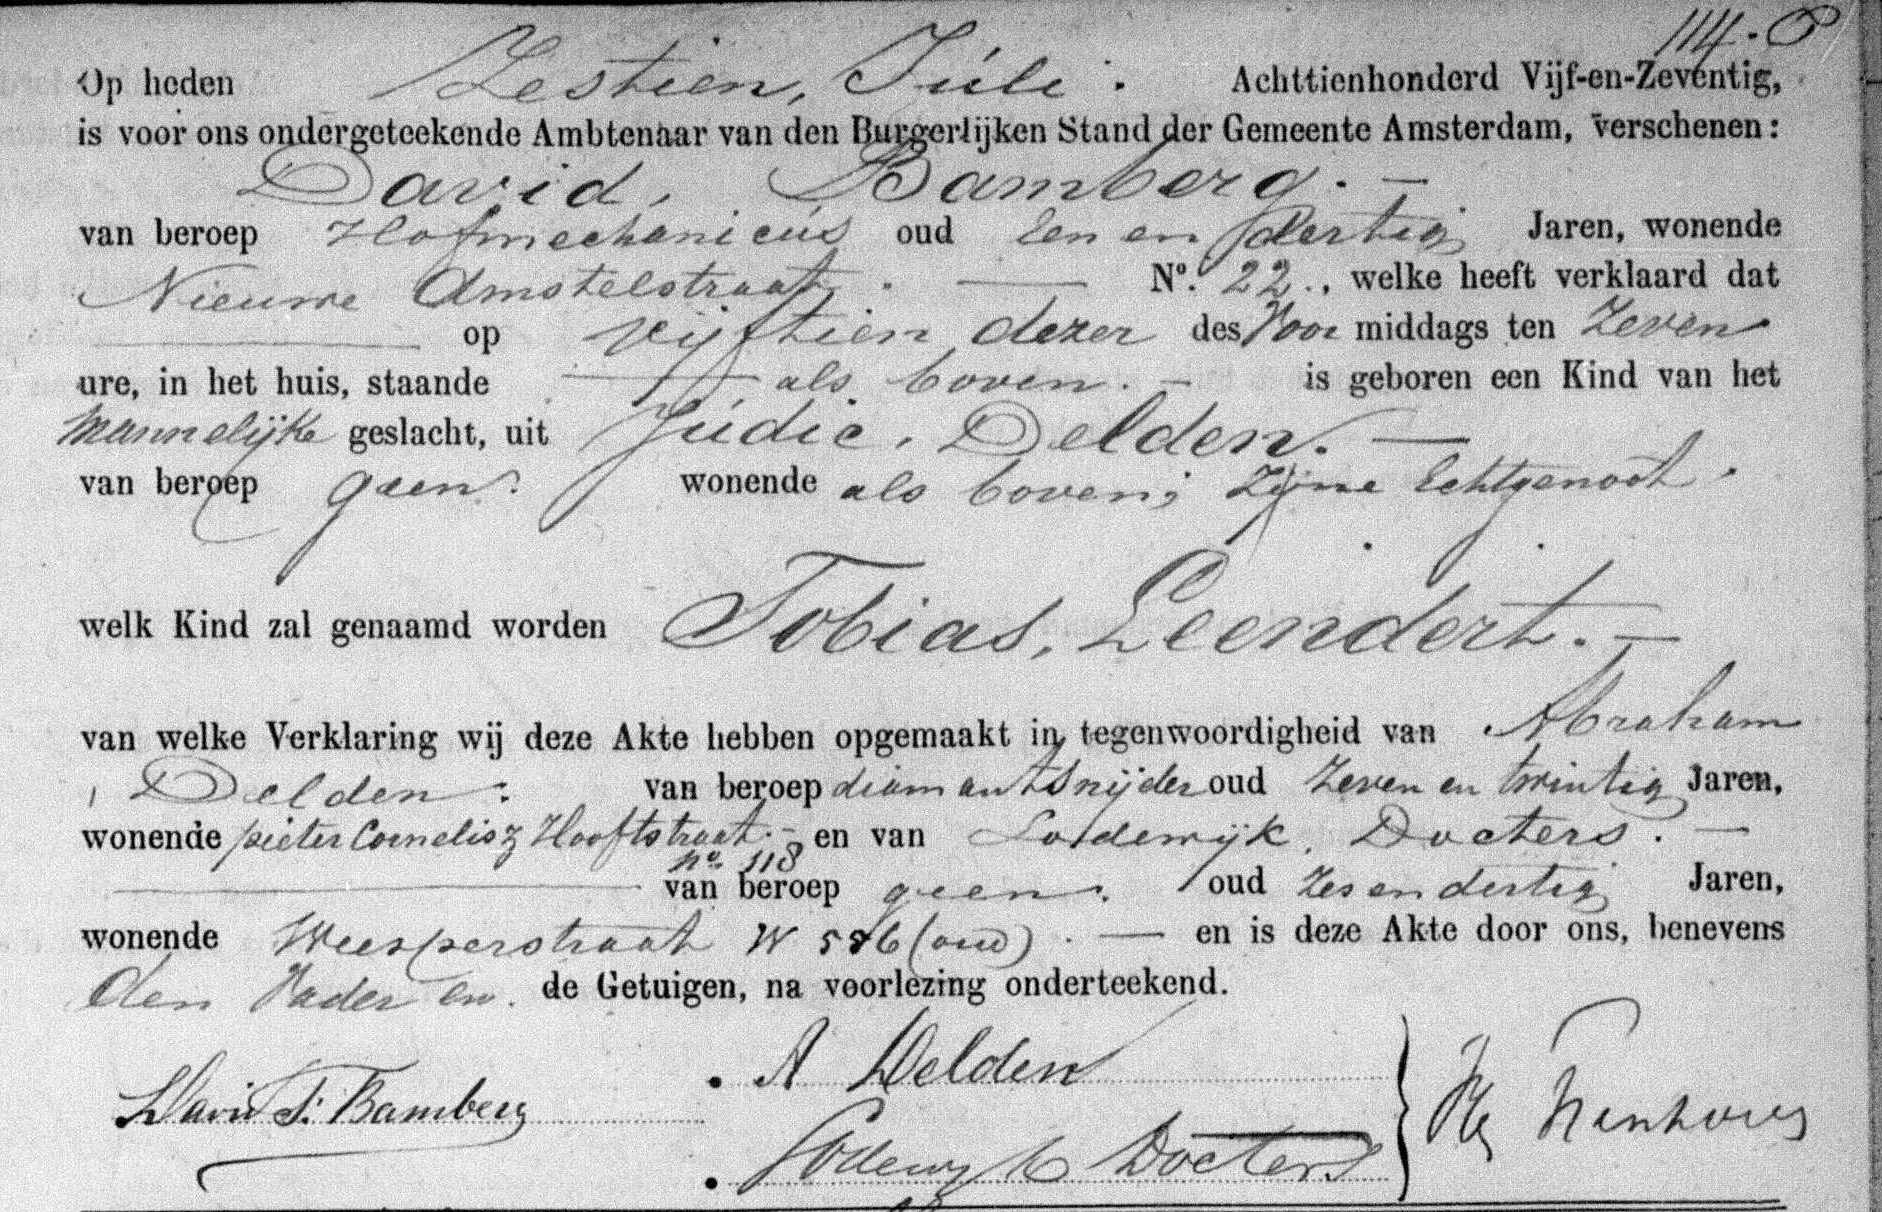 114.
Op heden Zestien, Júli. Achttienhonderd Vijf-en-Zeventig,
is voor ons ondergeteekende Ambtenaar van den Burgerlijken Stand der Gemeente Amsterdam, verschenen:
David, Bamberg. —
van beroep Hofmechanicús oud Een en dertig Jaren, wonende
Nieuwe Amstelstraat. — No. 22., welke heeft verklaard dat
— op vijftien dezer des Voor middags ten Zeven
ure, in het huis, staande — als boven. — is geboren een Kind van het
Mannelijke geslacht, uit Júdic, Delden. —
van beroep geen. wonende als boven; Zijne Echtgenoot.
welk Kind zal genaamd worden Tobias, Leendert. —
van welke Verklaring wij deze Akte hebben opgemaakt in tegenwoordigheid van Abraham
, Delden. van beroep diamantsnijder oud Zeven en twintig Jaren,
wonende pieter Cornelisz Hooftstraat. — en van Lodewijk, Docters. —
no. 118
— van beroep geen. oud Zes en dertig Jaren,
wonende Weesperstraat W 586 (oud). — en is deze Akte door ons, benevens
den Vader en de Getuigen, na voorlezing onderteekend.
David T. Bamberg
A Delden
Lodewyk Docters